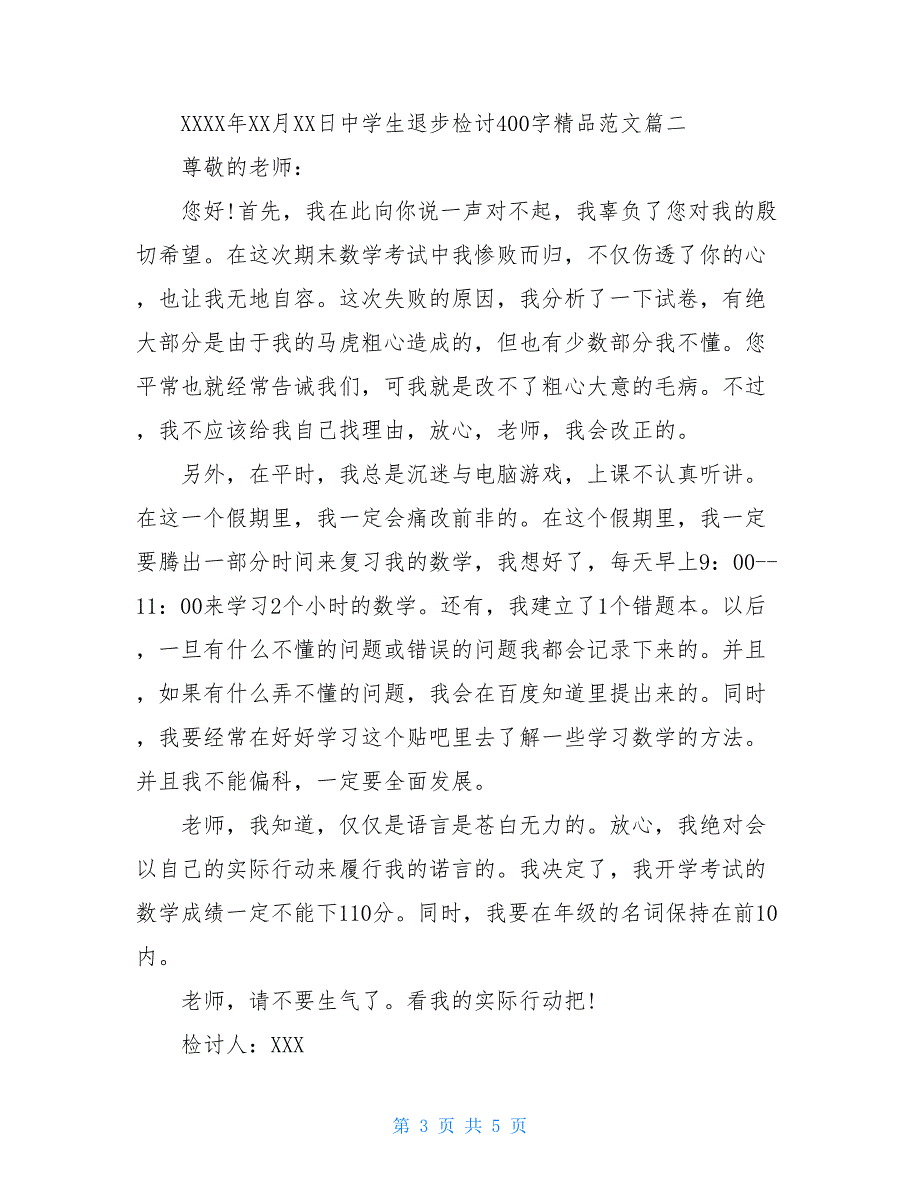 XXXX年XX月XX日中学生退步检讨400字精品范文篇二
尊敬的老师：
您好!首先，我在此向你说一声对不起，我辜负了您对我的殷
切希望。在这次期末数学考试中我惨败而归，不仅伤透了你的心
，也让我无地自容。这次失败的原因，我分析了一下试卷，有绝
大部分是由于我的马虎粗心造成的，但也有少数部分我不懂。您
平常也就经常告诫我们，可我就是改不了粗心大意的毛病。不过
，我不应该给我自己找理由，放心，老师，我会改正的。
另外，在平时，我总是沉迷与电脑游戏，上课不认真听讲。
在这一个假期里，我一定会痛改前非的。在这个假期里，我一定
要腾出一部分时间来复习我的数学，我想好了，每天早上9：00--
11：00来学习2个小时的数学。还有，我建立了1个错题本。以后
，一旦有什么不懂的问题或错误的问题我都会记录下来的。并且
，如果有什么弄不懂的问题，我会在百度知道里提出来的。同时
，我要经常在好好学习这个贴吧里去了解一些学习数学的方法。
并且我不能偏科，一定要全面发展。
老师，我知道，仅仅是语言是苍白无力的。放心，我绝对会
以自己的实际行动来履行我的诺言的。我决定了，我开学考试的
数学成绩一定不能下110分。同时，我要在年级的名词保持在前10
内。
老师，请不要生气了。看我的实际行动把!
检讨人：XXX
第 3 页 共 5 页